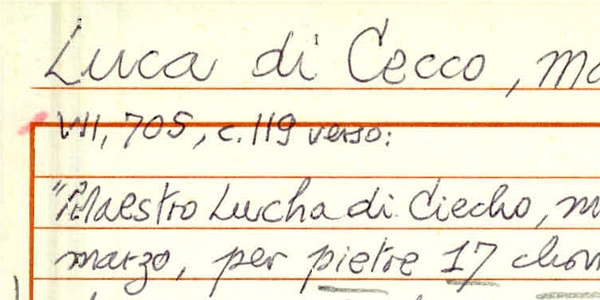 Luca di Cecco,
VII, 705, c. 119 verso:
"Maestro Lucha di Ciecho,
marzo, per pietre 17